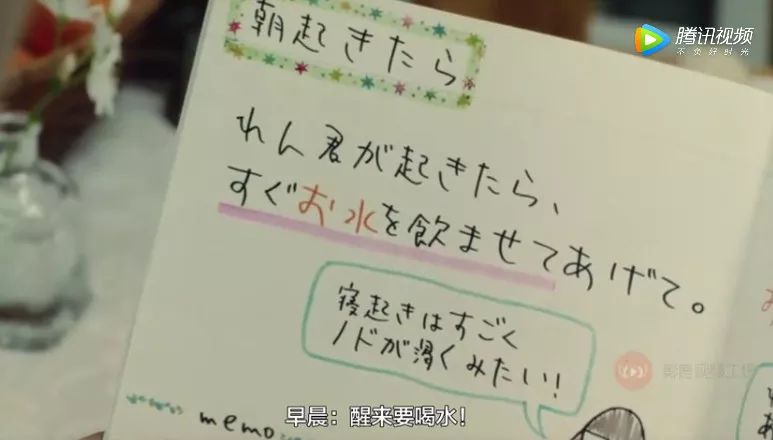 朝起きたら
腾讯视频
不负好时光
れん君が起きたら、
すぐお水を飲ませてあげて。
寝起きはすごく
ノドが渇くみたい!
memo
早晨：醒来要喝水!